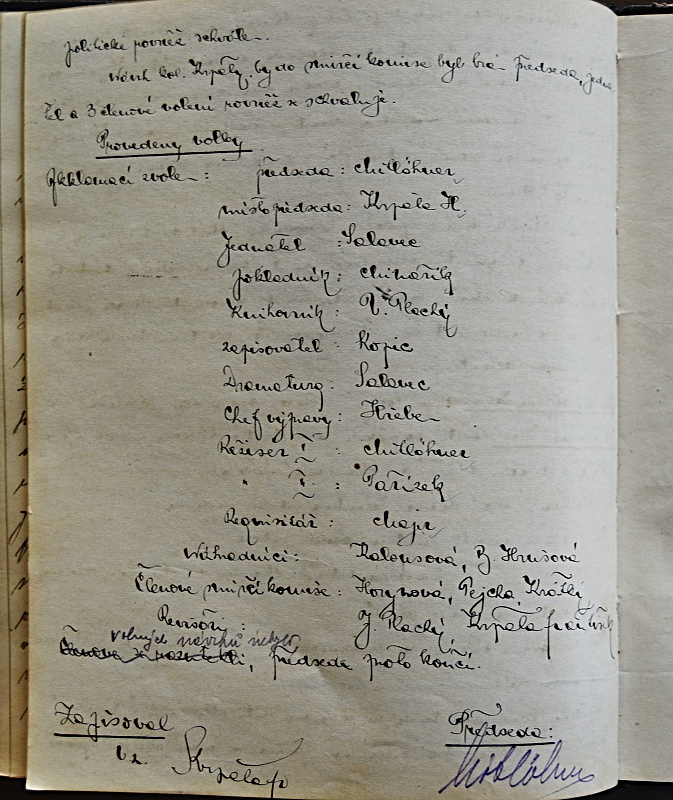 politické rovněž schvále-.
Návrh kol. Krpály, by do smírčí komise byl brán předseda, jedna
tel a 3 členové volení rovněž se schvaluje.
Provedeny volby
Aklamací zvole-: předseda: Mitlöhner,
místopředseda: Krpála H.
Jednatel : Salavec
pokladník: Minařík
Knihovník: V. Plachý
zapisovatel: Kopic
Dramaturg: Salavec
Chef výpravy: Hřebe-
Režiser I : Mitlöhner
" II : Pařízek
Requisitář: Chajr
Náhradníci: Kalousová, B Hrušová
Členové smírčí komise: Horynová, Pejcha, Krátký,
Revisoři: J. Plachý, Krpála
volných návrhů nebylo, předseda proto končí.
Zapisoval Předseda:
vz. Krpála Mitlöhner